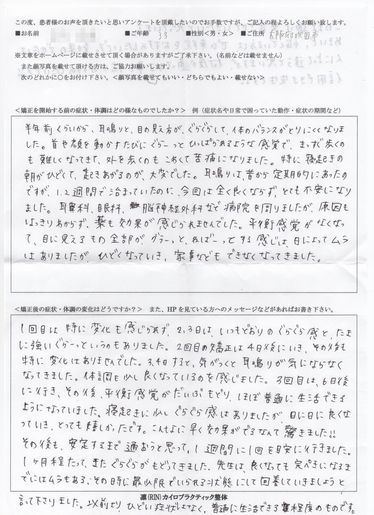 この度、患者様のお声を頂きたいと思いアンケートを頂戴したいのでお手数ですが、ご記入の程よろしくお願い致します。
■お名前 ■ご年齢 33 ■性別<男・女> ■ご住所
※文章をホームページに載せさせて頂く場合がありますがご了承下さい。(名前などは載せません)
また顔写真を載せて頂ける方は、ご協力お願いします。
次のどれかに○をお付け下さい。<顔写真を載せてもいい・どちらでもよい・載せない>
<矯正を開始する前の症状・体調はどの様なものでしたか?> 例(症状名や日常で困っていた動作・症状の期間など)
半年前くらいから、耳鳴りと、目の見え方が、ぐらぐらして、体のバランスがとりにくくなりま
した。首や顔を動かすたびにぐらーっとひっぱられるような感覚で、まっすぐ歩くの
も難しくなってきて、外を歩くのもこわくて苦痛になりました。特に寝起きの
朝がひどくて、起きあがるのが、大変でした。耳鳴りは、昔から定期的にあったの
ですが、1、2週間で治まっていたのに、今回は全く良くならず、とても不安になり
ました。耳鼻科、眼科、脳神経外科など病院を周りましたが、原因も
はっきりわからず、薬も効果が感じられませんでした。平行感覚がなくなっ
て、目に見えるもの全部が、グラーっと、ねばーっとする感じは、日によってムラ
はありましたが、ひどくなっていき、家事などもできなくなってきました。
<矯正後の症状・体調の変化はどうですか?> また、HPを見ている方へのメッセージなどがあればお書き下さい。
1回目は特に変化も感じられず、2、3日は、いつもどおりのぐらぐら感と、たまに
強いぐらーっというのもありました。2回目の矯正は4日後にいき、その後も
特に変化はありませんでした。3、4日すると、気がつくと耳鳴りが気にならなく
なってきました。体調も少し良くなっているのを感じました。3回目は、6日後
に行き、その後、平行感覚がだいぶもどり、ほぼ普通に生活できる
ようになっていました。寝起きに少しぐらぐら感はありましたが日に日に良くなっ
ていき、とっても嬉しかったです。こんなに早く効果がでるなんて驚きました!!
その後も、安定するまで通おうと思って、1週間に1回を目安に行きました。
1ヶ月程たって、またぐらぐらがもどってきました。先生は、良くなっても完ぺきになるまで
にはムラもある、その時に最小限でいられる状態にして回復していきましょうと
言って下さりました。以前よりひどい症状はなく、普通に生活できる程度のものです。
凛(RIN)カイロプラクティック整体